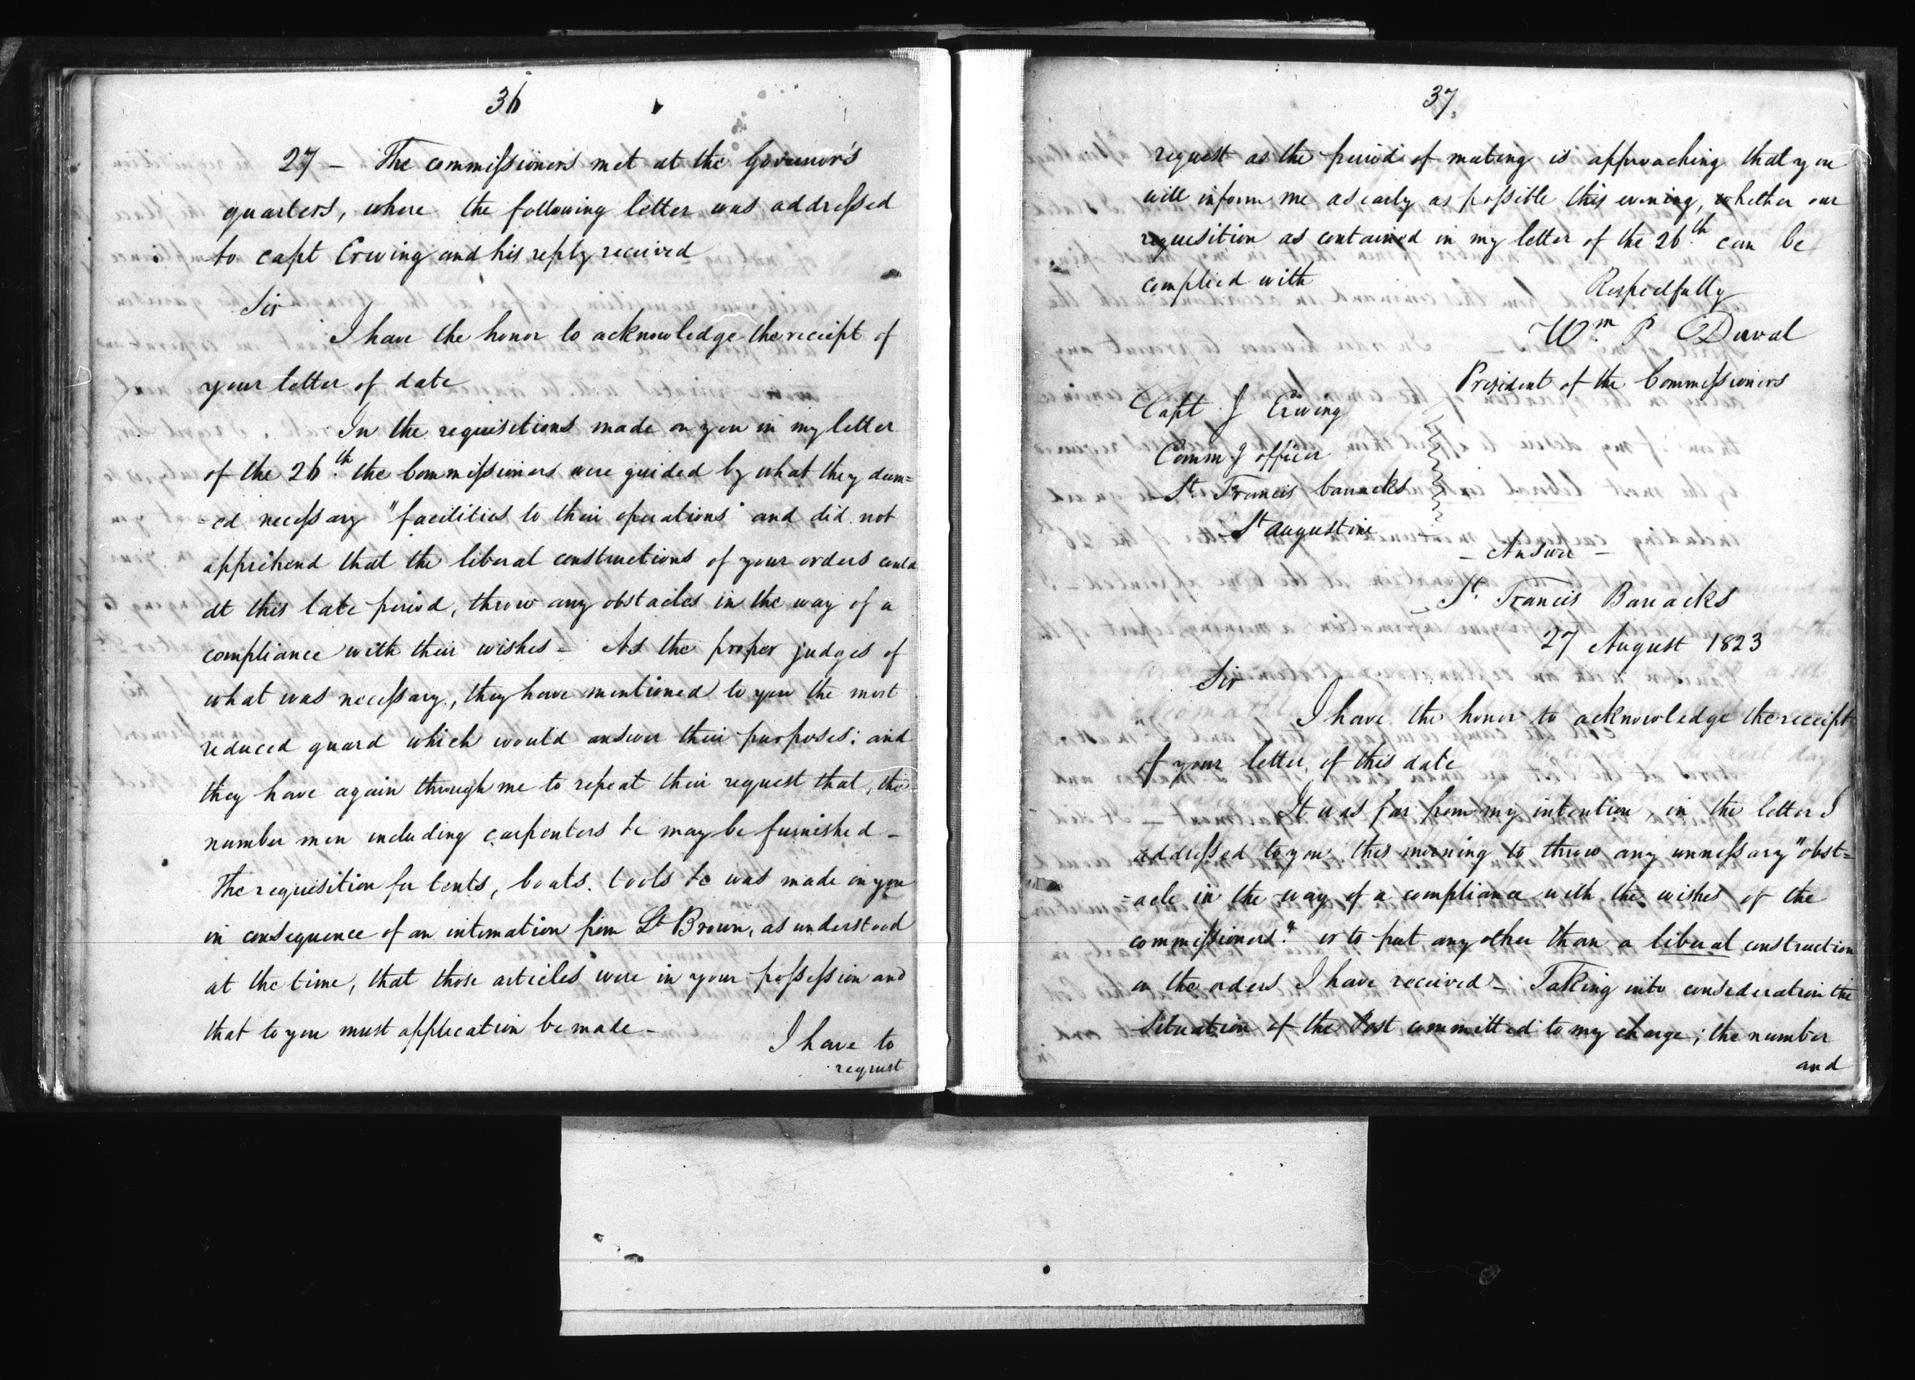 36
27 – The commissioners met at the Governor's
quarters, where the following letter was addressed
to capt Erving and his reply received
Sir
I have the honor to acknowledge the receipt of
your letter of date
In the requisitions made on you in my letter
of the 26th the Commissioners were guided by what they deem=
=ed necessary "facilities to their operations" and did not
apprehend that the liberal constructions of your orders could
at this late period, throw any obstacles in the way of a
compliance with their wishes – As the proper judges of
what was necessary, they have mentioned to you the most
reduced guard which would answer their purposes; and
they have again through me to repeat their request that, the
number men including carpenters &c may be furnished –
The requisition for tents, boats, tools &c was made on you
in consequence of an intimation from Lt Brown, as understood
at the time, that those articles were in your possession and
that to you must application be made –
I have to
request
37
request as the period of meeting is approaching that you
will inform me as early as possible this evening, whether our
requisition as contained in my letter of the 26th can be
complied with
Respectfully
Wm P Duval
President of the Commissioners
Capt J Erving
Commg officer
St Francis barracks
St augustine
– Answer –
St Francis Barracks
27 August 1823
Sir
I have the honor to acknowledge the receipt
of your letter, of this date
It was far from my intention in the letter I
addressed to you this morning to throw any unnessary "obst=
=acle in the way of a compliance with the wishes of the
commissioners." or to put any other than a liberal construction
on the orders I have received – Taking into consideration the
situation of the Post committed to my charge; the number
and